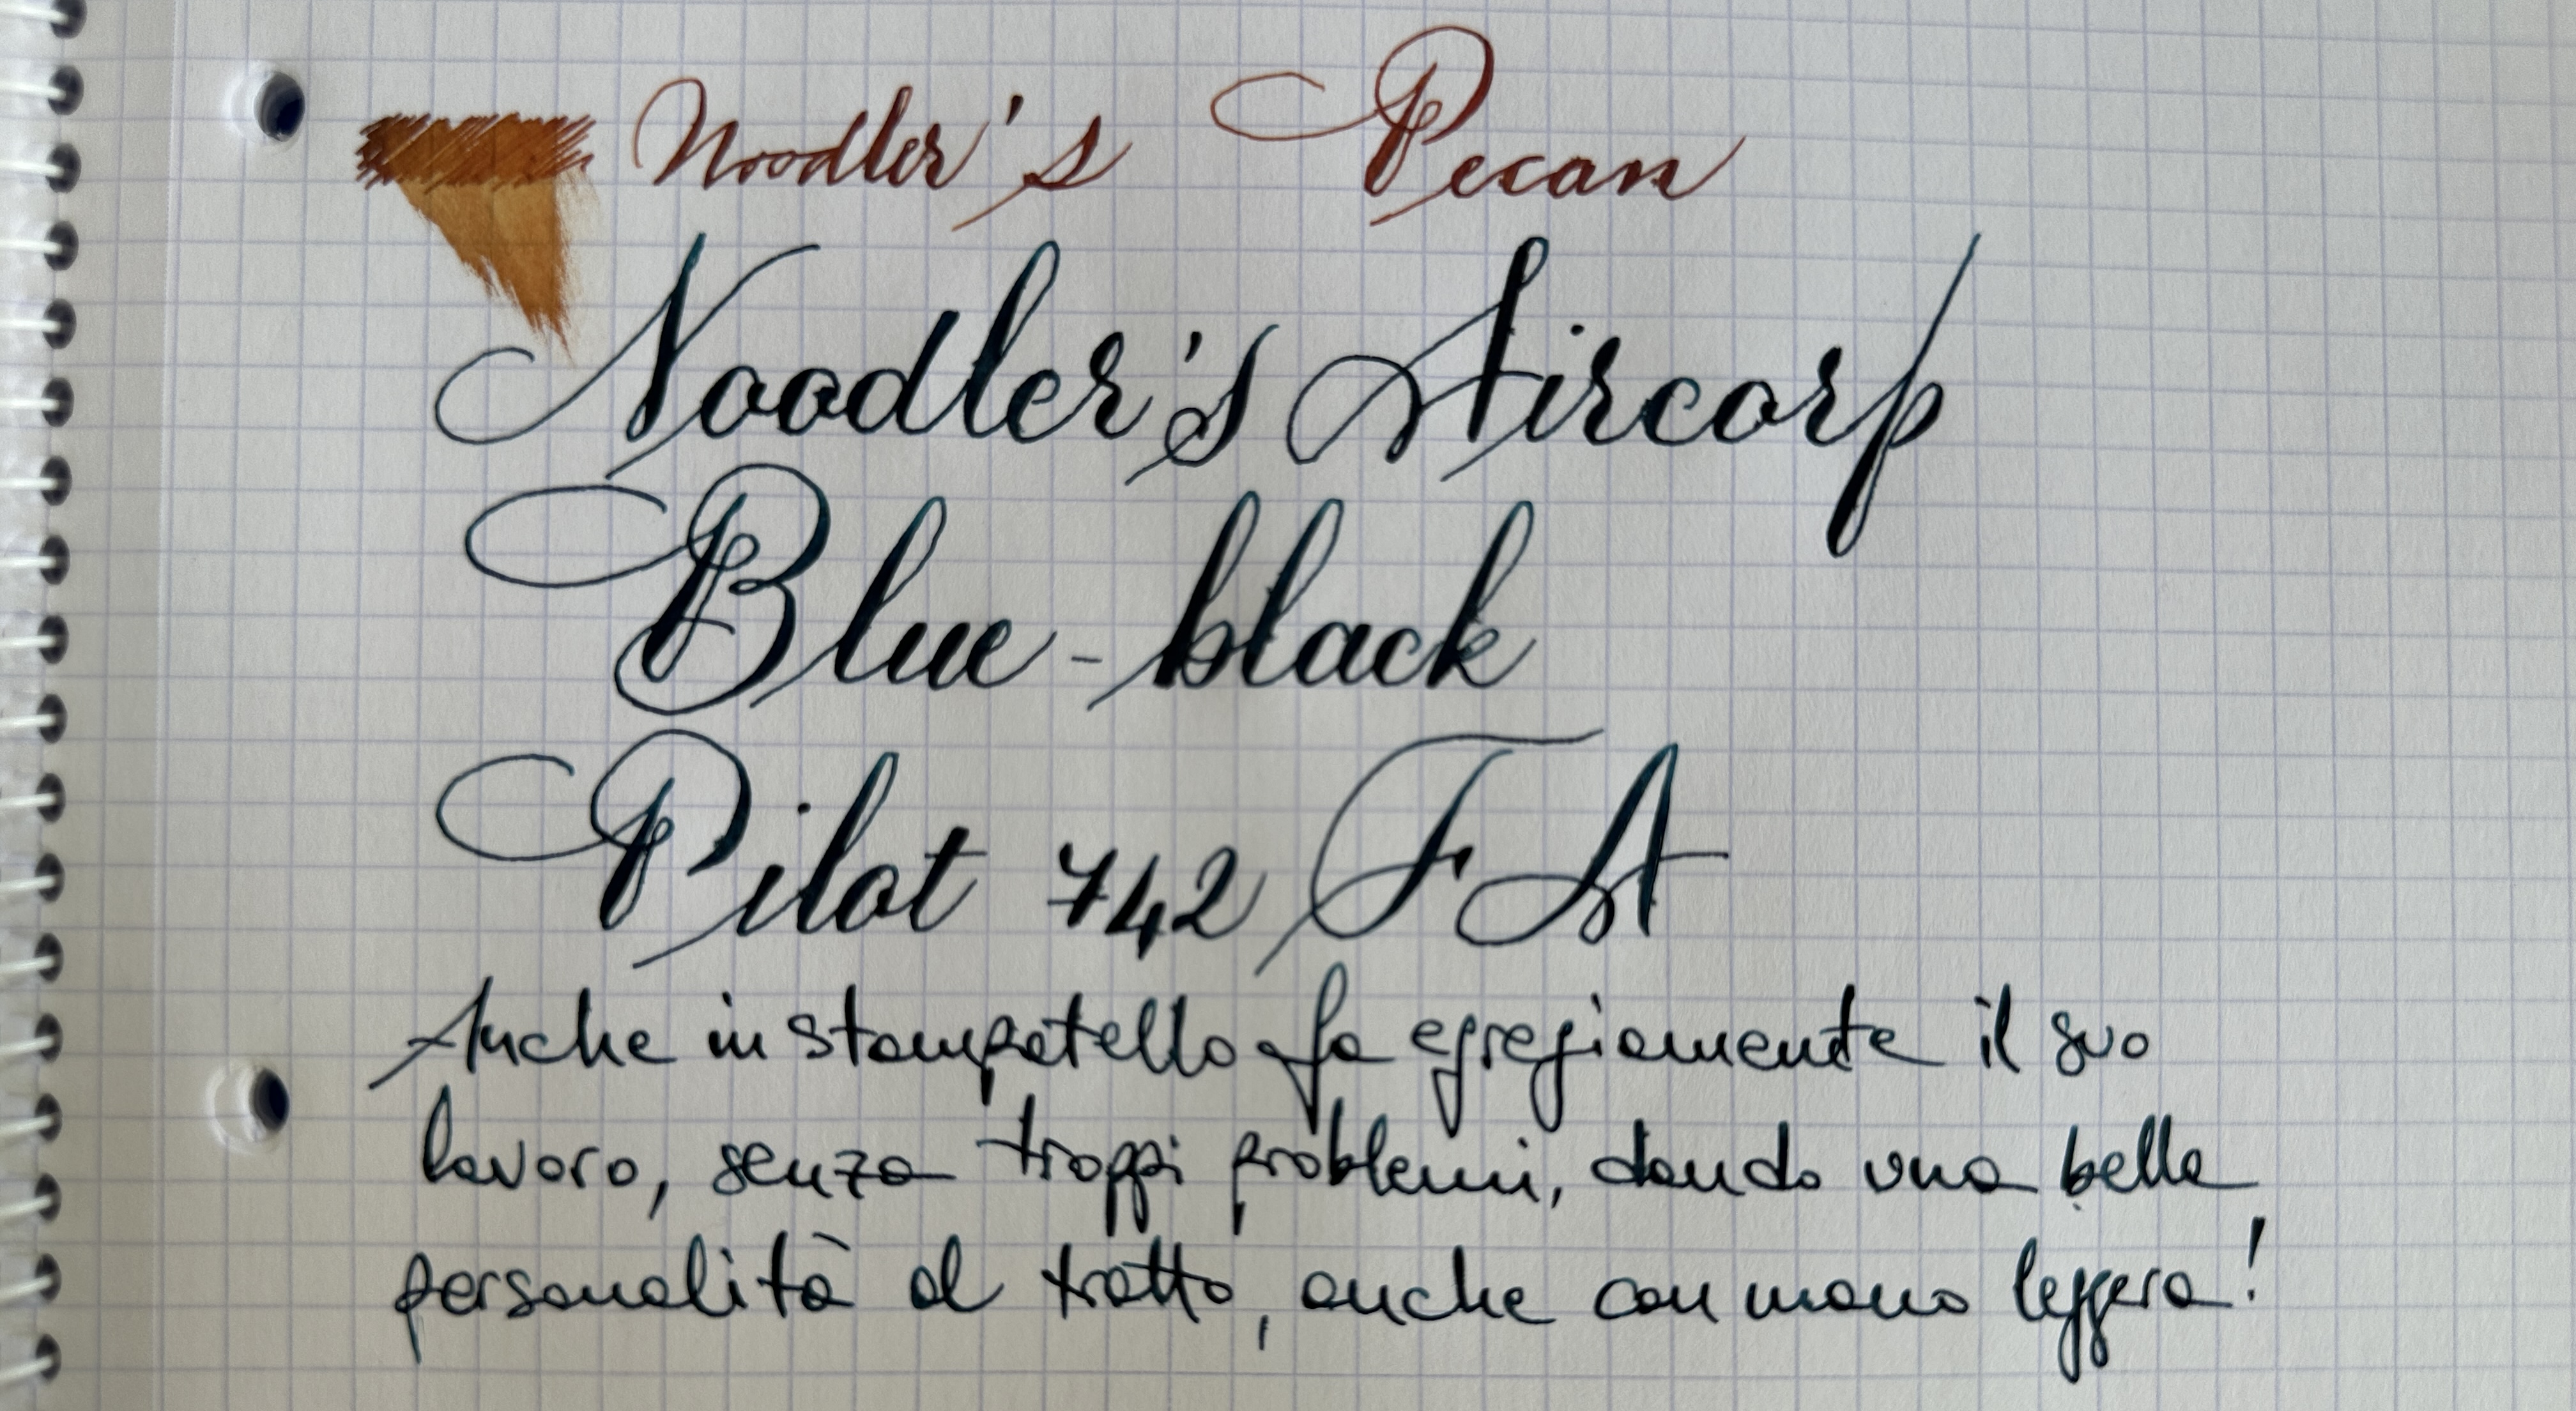 Noodler's Pecan
Noodler's Aircorp
Blue-black
Pilot 742 FA
Anche in stampatello fa egregiamente il suo
lavoro, senza troppi problemi, dando una bella
personalità al tratto, anche con mano leggera!